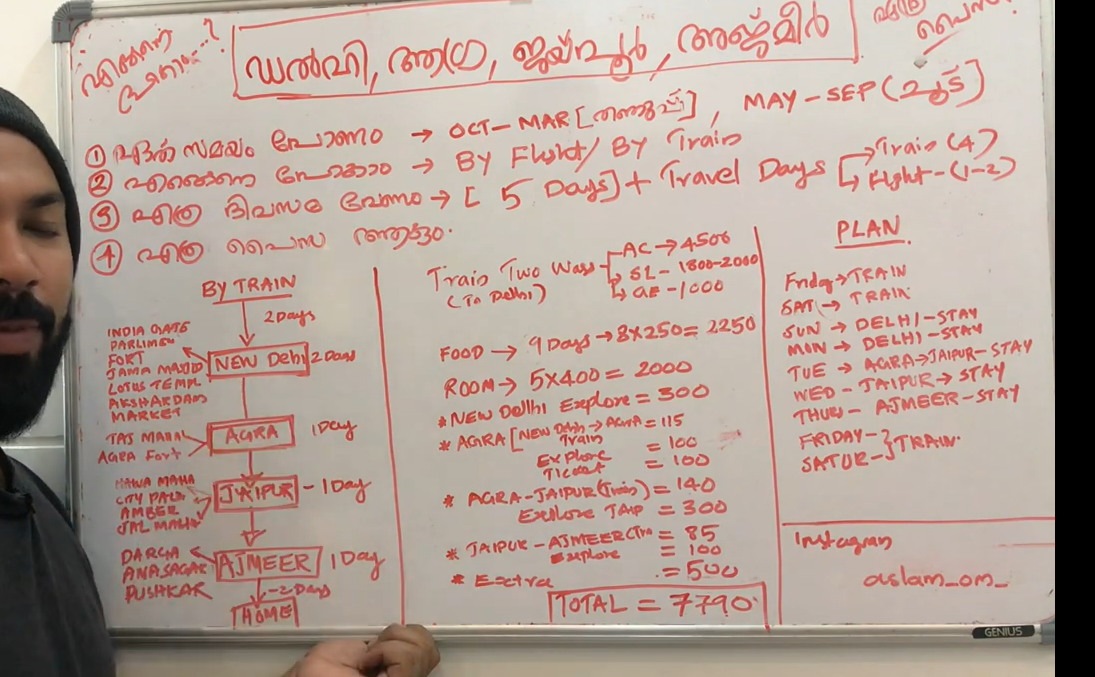 എങ്ങനെ പ്ലാൻ...?
ഡൽഹി, ആഗ്ര, ജയ്പൂർ, അജ്മീർ
എത്ര പൈസ?
① ഏത് സമയം പോണം → OCT-MAR [തണുപ്പ്], MAY-SEP (ചൂട്)
② എങ്ങനെ പോകാം → By Flight/ By Train
③ എത്ര ദിവസം വേണം → [5 Days] + Travel Days
→ Train (4)
→ Flight - (1-2)
④ എത്ര പൈസ ആകും.
BY TRAIN
2 Days
INDIA GATE
PARLIMEN
FORT
JAMA MASJID
LOTUS TEMPL
AKSHARDAM
MARKET
NEW Delhi 2 Days
TAJ MAHAL
AGRA FORT
AGRA 1 Day
HAWA MAHA
CITY PALA
AMBER
JAL MAHAL
JAIPUR - 1 Day
DARGA
ANASAGAR
PUSHKAR
AJMEER 1 Day
- 2 Days
HOME
Train Two Ways
(To Delhi)
AC → 4500
SL - 1800-2000
GE - 1000
FOOD → 9 Days → 8×250 = 2250
ROOM → 5×400 = 2000
* NEW Delhi Explore = 300
* AGRA [NEW Delhi → AGRA = 115
Train
Explore = 100
Ticket = 100
* AGRA-JAIPUR (Train) = 140
Explore JAIP = 300
* JAIPUR - AJMEER (Tra = 85
Explore = 100
* Extra = 500
TOTAL = 7790
PLAN
Friday → TRAIN
SAT → TRAIN
SUN → DELHI - STAY
MON → DELHI - STAY
TUE → AGRA → JAIPUR - STAY
WED - JAIPUR → STAY
THUR - AJMEER - STAY
FRIDAY -
SATUR - } TRAIN
Instagram
aslam_om_
GENIUS